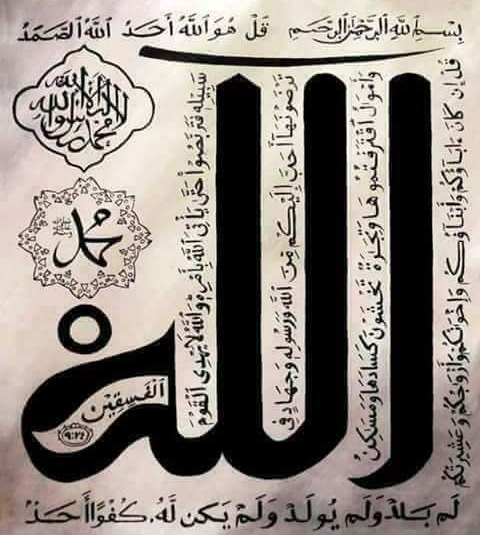 بِسْمِ اللهِ الرَّحْمٰنِ الرَّحِيمِ قُلْ هُوَ اللهُ أَحَدٌ اللهُ الصَّمَدُ
لا اله الا الله محمد رسول الله
محمد
الله
قُلْ إِن كَانَ ءَابَاؤُكُمْ وَأَبْنَاؤُكُمْ وَإِخْوَٰنُكُمْ وَأَزْوَٰجُكُمْ وَعَشِيرَتُكُمْ
وَأَمْوَٰلٌ اقْتَرَفْتُمُوهَا وَتِجَٰرَةٌ تَخْشَوْنَ كَسَادَهَا وَمَسَٰكِنُ
تَرْضَوْنَهَا أَحَبَّ إِلَيْكُم مِّنَ اللهِ وَرَسُولِهِ وَجِهَادٍ فِي
سَبِيلِهِ فَتَرَبَّصُوا حَتَّىٰ يَأْتِيَ اللهُ بِأَمْرِهِ وَاللهُ لَا يَهْدِي الْقَوْمَ
الْفَٰسِقِينَ
٩:٢٤
لَمْ يَلِدْ وَلَمْ يُولَدْ وَلَمْ يَكُن لَّهُ كُفُوًا أَحَدٌ